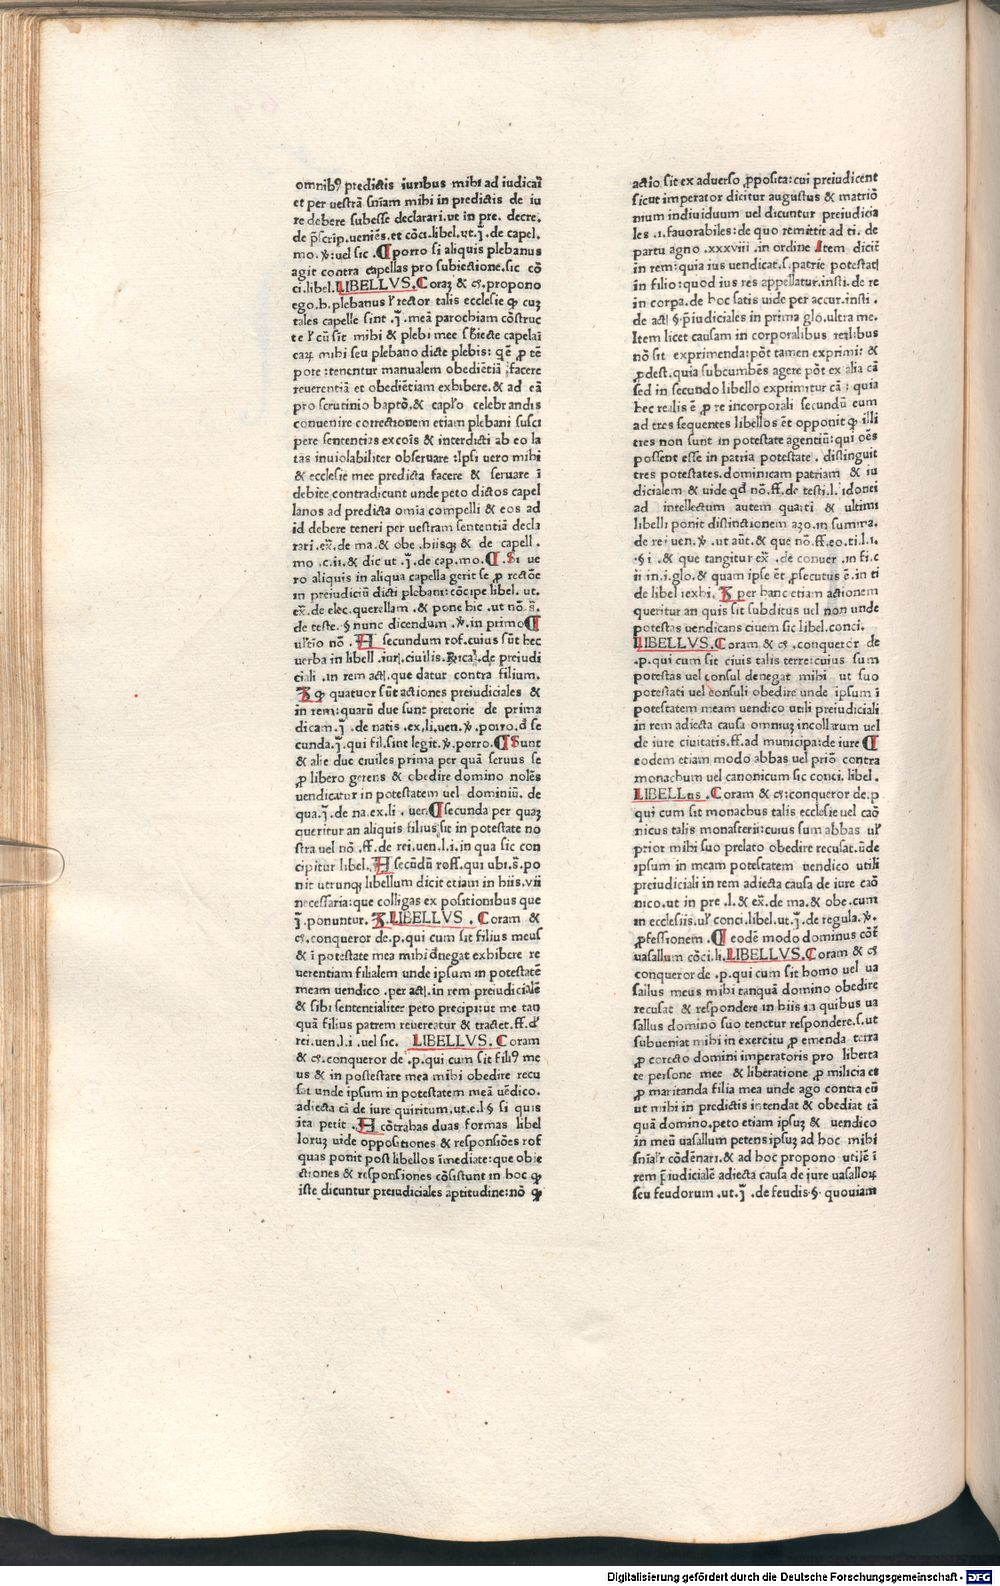 omnibꝰ predictis iuribus mihi ad iudicāī
et per uestrā snīam mihi in predictis de iu
re debere subesse declarari.ut in pre. decre.
de p̄scrip.ueniēs.et cōci.libel.ut.ị̄. de capel.
mo. ꝟ: uel sic .¶porro si aliquis plebanus
agit contra capellas pro subiectione.sic cō
ci.libel. LIBELLVS. Coraꝫ & cꝭ.propono
ego.b.plebanus ł rector talis ecclesie ꝙ cuꝫ
tales capelle sint .ị̄. meā parochiam cōstruc
te ł cū sit mihi & plebi mee sbiecte capelaī
eaꝝ mihi seu plebano dicte plebis: qē ꝓ tē
pore tenentur manualem obediētiā facere
reuerentiā et obediētiam exhibere.& ad eā
pro scrutinio baptō.& capło celebrandis
conuenire correctionem etiam plebani susci
pere sententias excoīs & interdicti ab eo la
tas inuiolabiliter obseruare :Ipsi uero mihi
& ecclesie mee predicta facere & seruare ī
debite contradicunt unde peto dictos capel
lanos ad predicta omia compelli & eos ad
id debere teneri per uestram sententiā decla
rari .ex̄. de ma.& obe .hiisqꝫ & de capell .
mo .c.ii.& dic ut .ị̄. de cap.mo.¶ .Si ue
ro aliquis in aliqua capella gerit se ꝓ rectōe
in preiudiciū dicti plebani: cōcipe libel. ut.
ex̄. de elec. querellam .& pone hic .ut nō. s̄.
de teste. § nunc dicendum .ꝟ. in primo¶
ultīo nō . A secundum rof.cuius sūt hec
uerba in libell .iurꝭ.ciuilis.Rical.de preiudi
ciali .in rem actꝭ.que datur contra filium.
R ꝙ quatuor sūt actiones preiudiciales &
in rem: quarū due sunt pretorie de prima
dicam.ị̄ .de natis .ex.li.uen.ꝟ.porro.d se
cunda.ị̄. qui fil.sint legit.ꝟ.porro.¶ Sunt
& alie due ciuiles prima per quā seruus se
ꝓ libero gerens & obedire domino nolēs
uendicatur in potestatem uel dominiū. de
qua.ị̄.de na.ex.li . uen¶secunda per quaꝫ
queritur an aliquis filius sit in potestate no
stra uel nō .ff.de rei.uen.l.i.in qua sic con
cipitur libel. A secūdū roff.qui ubi.s̄.po
nit utrunqꝫ libellum dicit etiam in hiis.vii
necessaria: que colligas ex positionibus que
ị̄.ponuntur. R.LIBELLVS . Coram &
cꝭ.conqueror de.p.qui cum sit filius meus
& ī potestate mea mihi dnegat exhibere re
uerentiam filialem unde ipsum in potestatē
meam uendico .per actꝭ.in rem preiudicialē
& sibi sententialiter peto precipi: ut me tan
quā filius patrem reuereatur & tractet.ff.d
rei.uen.l.i .uel sic. LIBELLVS. Coram
& cꝭ.conqueror de .p.qui cum sit filiꝰ me
us & in postestate mea mihi obedire recu
sat unde ipsum in potestatem meā uēdico.
adiecta cā de iure quiritum.ut.e.l § si quis
ita petit . A cōtrahas duas formas libel
loruꝫ uide oppositiones & responsiōes rof
quas ponit post libellos īmediate: que obie
ctiones & responsiones cōsistunt in hoc ꝙ
iste dicuntur preiudiciales aptitudine: nō ꝙ
actio sit ex aduerso ꝓposita: cui preiudicent
sicut imperator dicitur augustus & matrio
nium indiuiduum uel dicuntur preiudicia
les .i. fauorabiles: de quo remittit ad ti. de
partu agno .xxxviii .in ordine Item dicit
in rem: quia ius uendicat.s.patrie potestatꝭ
in filio: quod ius res appellatur.insti.de re
in corpa.de hoc satis uide per accur.insti .
de actꝭ §.p̄iudiciales in prima glo.ultra me.
Item licet causam in corporalibus rebus
nō sit exprimenda: pōt tamen exprimi: &
ꝓdest.quia subcumbēs agere pōt ex alia cā
sed in secundo libello exprimitur cā : quia
hec realis ē ꝓ re incorporali secundū eum
ad tres sequentes libellos ēt opponit ꝙ illi
tres non sunt in potestate agentiū: qui oēs
possent esse in patria potestate . distinguit
tres potestates.dominicam patriam & iu
dicialem & uide qd nō.ff.de testi.l. idonei
ad intellectum autem quarti & ultimi
libelli ponit distinctionem azo.in summa.
de rei uen.ꝟ .ut aūt.& que nō.ff.eo.ti.l.i.
.§ i .& que tangitur ex̄ .de conuer .in fi.c
ii in.i.glo.& quam ipse ēt ꝓsecutus ē.in ti
de libel iexhi. R per hanc etiam actionem
queritur an quis sit subditus uel non unde
potestas uendicans ciuem sic libel.conci.
LIBELLVS.Coram & cꝭ .conqueror de
.p.qui cum sit ciuis talis terre: cuius sum
potestas uel consul denegat mihi ut suo
potestati uel consuli obedire unde ipsum ī
potestatem meam uendico utili preiudiciali
in rem adiecta causa omniuꝫ incollarum uel
de iure ciuitatis.ff.ad municipa: de iure ¶
eodem etiam modo abbas uel priō contra
monachum uel canonicum sic conci. libel.
LIBELLus .Coram & cꝭ: conqueror de.p
qui cum sit monachus talis ecclesie uel caō
nicus talis monasterii: cuius sum abbas uł
prior mihi suo prelato obedire recusat.ūde
ipsum in meam potestatem uendico utili
preiudiciali in rem adiecta causa de iure caō
nico.ut in pre .l.& ex̄.de ma.& obe.cum
in ecclesiis.uł conci.libel.ut.ị̄.de regula.ꝟ.
ꝓfessionem .¶ eodē modo dominus cōt̄
uasallum cōci.li.LIBELLVS.Coram & cꝭ
conqueror de .p.qui cum sit homo uel ua
sallus meus mihi tanquā domino obedire
recusat & respondere in hiis in quibus ua
sallus domino suo tenetur respondere.s.ut
subueniat mihi in exercitu ꝓ emenda terra
ꝓ corecto domini imperatoris pro liberta
te persone mee & liberatione ꝓ milicia et
ꝓ maritanda filia mea unde ago contra eū
ut mihi in predictis intendat & obediat tā
quā domino.peto etiam ipsuꝫ & uendico
in meū uasallum petens ipsuꝫ ad hoc mihi
snīalr cōdēnari.& ad hoc propono utilē ī
rem p̄iudicialē adiecta causa de iure uasalloꝝ
seu feudorum .ut.ị̄ .de feudis.§. quoniam
Digitalisierung gefördert durch die Deutsche Forschungsgemeinschaft - DFG